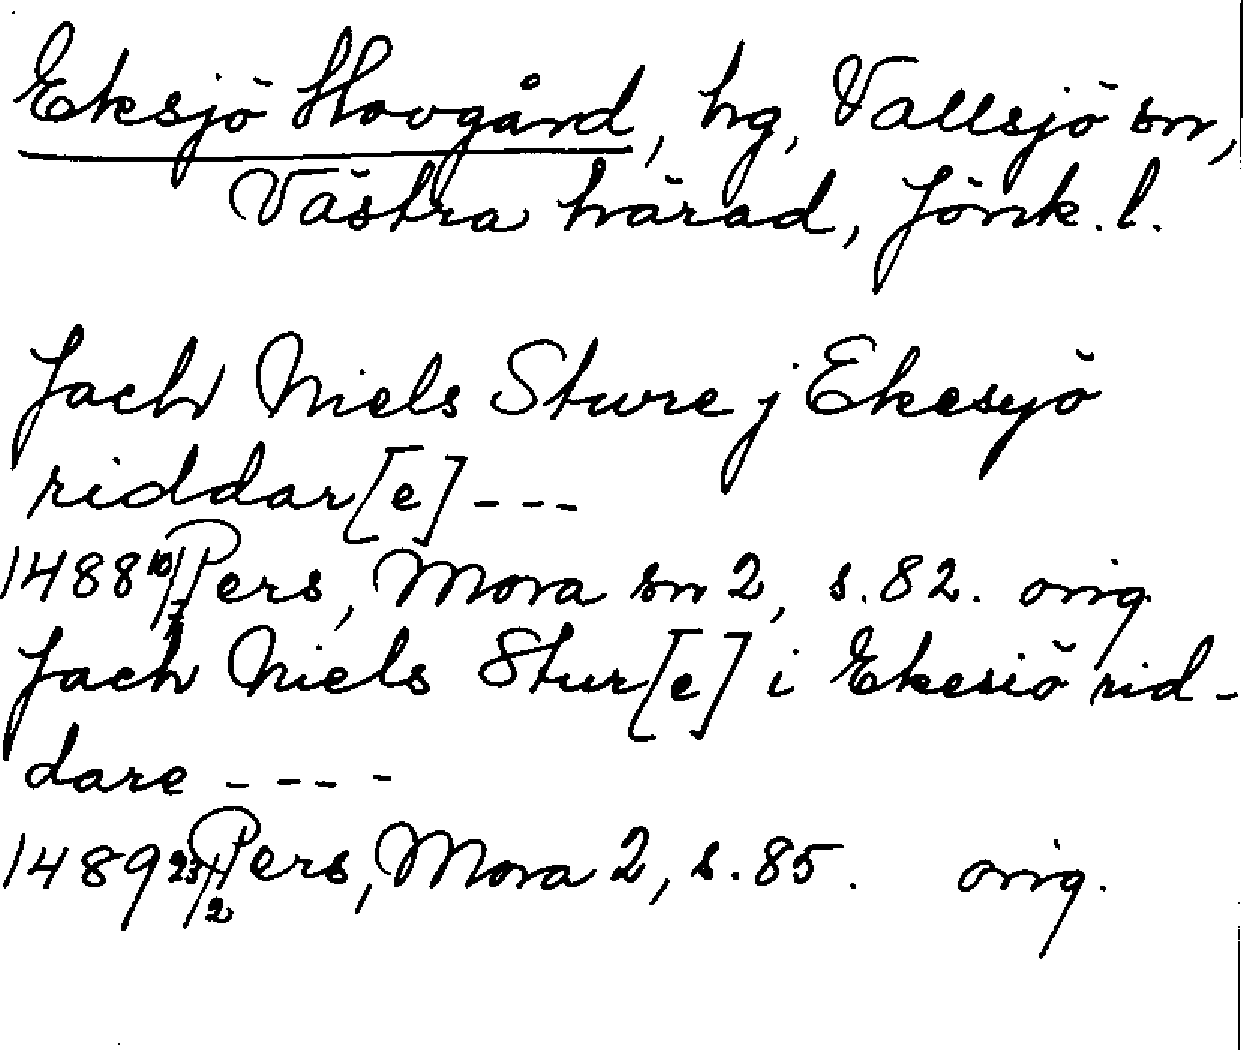 Eksjö Hovgård, hg, Vallsjö sn,
Västra härad, Jönk. l.
Jach Niels Sture j Ekesyö
riddar[e] ---
1488 10/7 Pers, Mora sn 2, s. 82. orig
Jach Niels Stur[e] i Ekesiö rid-
dare ----
1489 23/2 Pers, Mora 2, s. 85. orig.